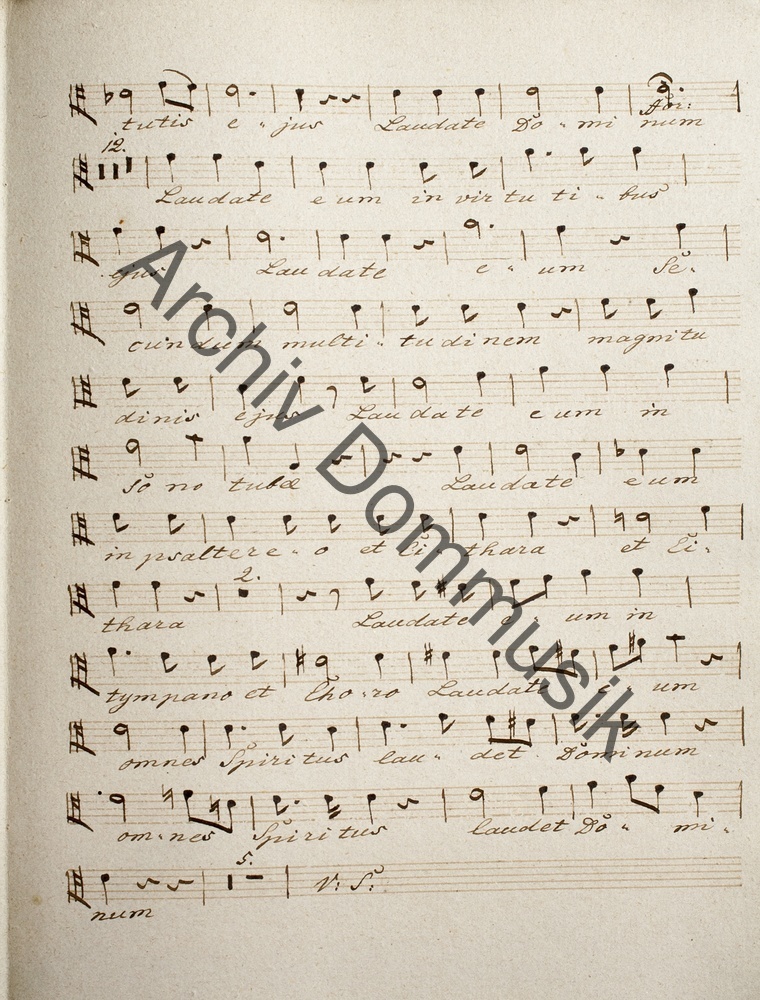 tutis e - jus Laudate Do - mi num
For:
12.
Laudate eum in virtu ti - bus
ejus Lau date e - um Se -
cundum multi - tudinem magnitu
dinis ejus Laudate eum in
So no tubæ Laudate eum
in psaltere - o et Ci - thara et Ci -
2.
thara Laudate e - um in
tympano et Cho - ro Laudate e - um
omnes Spiritus lau - det Dominum
om - nes Spiritus laudet Do - mi -
5.
num V: S:
Archiv Dommusik